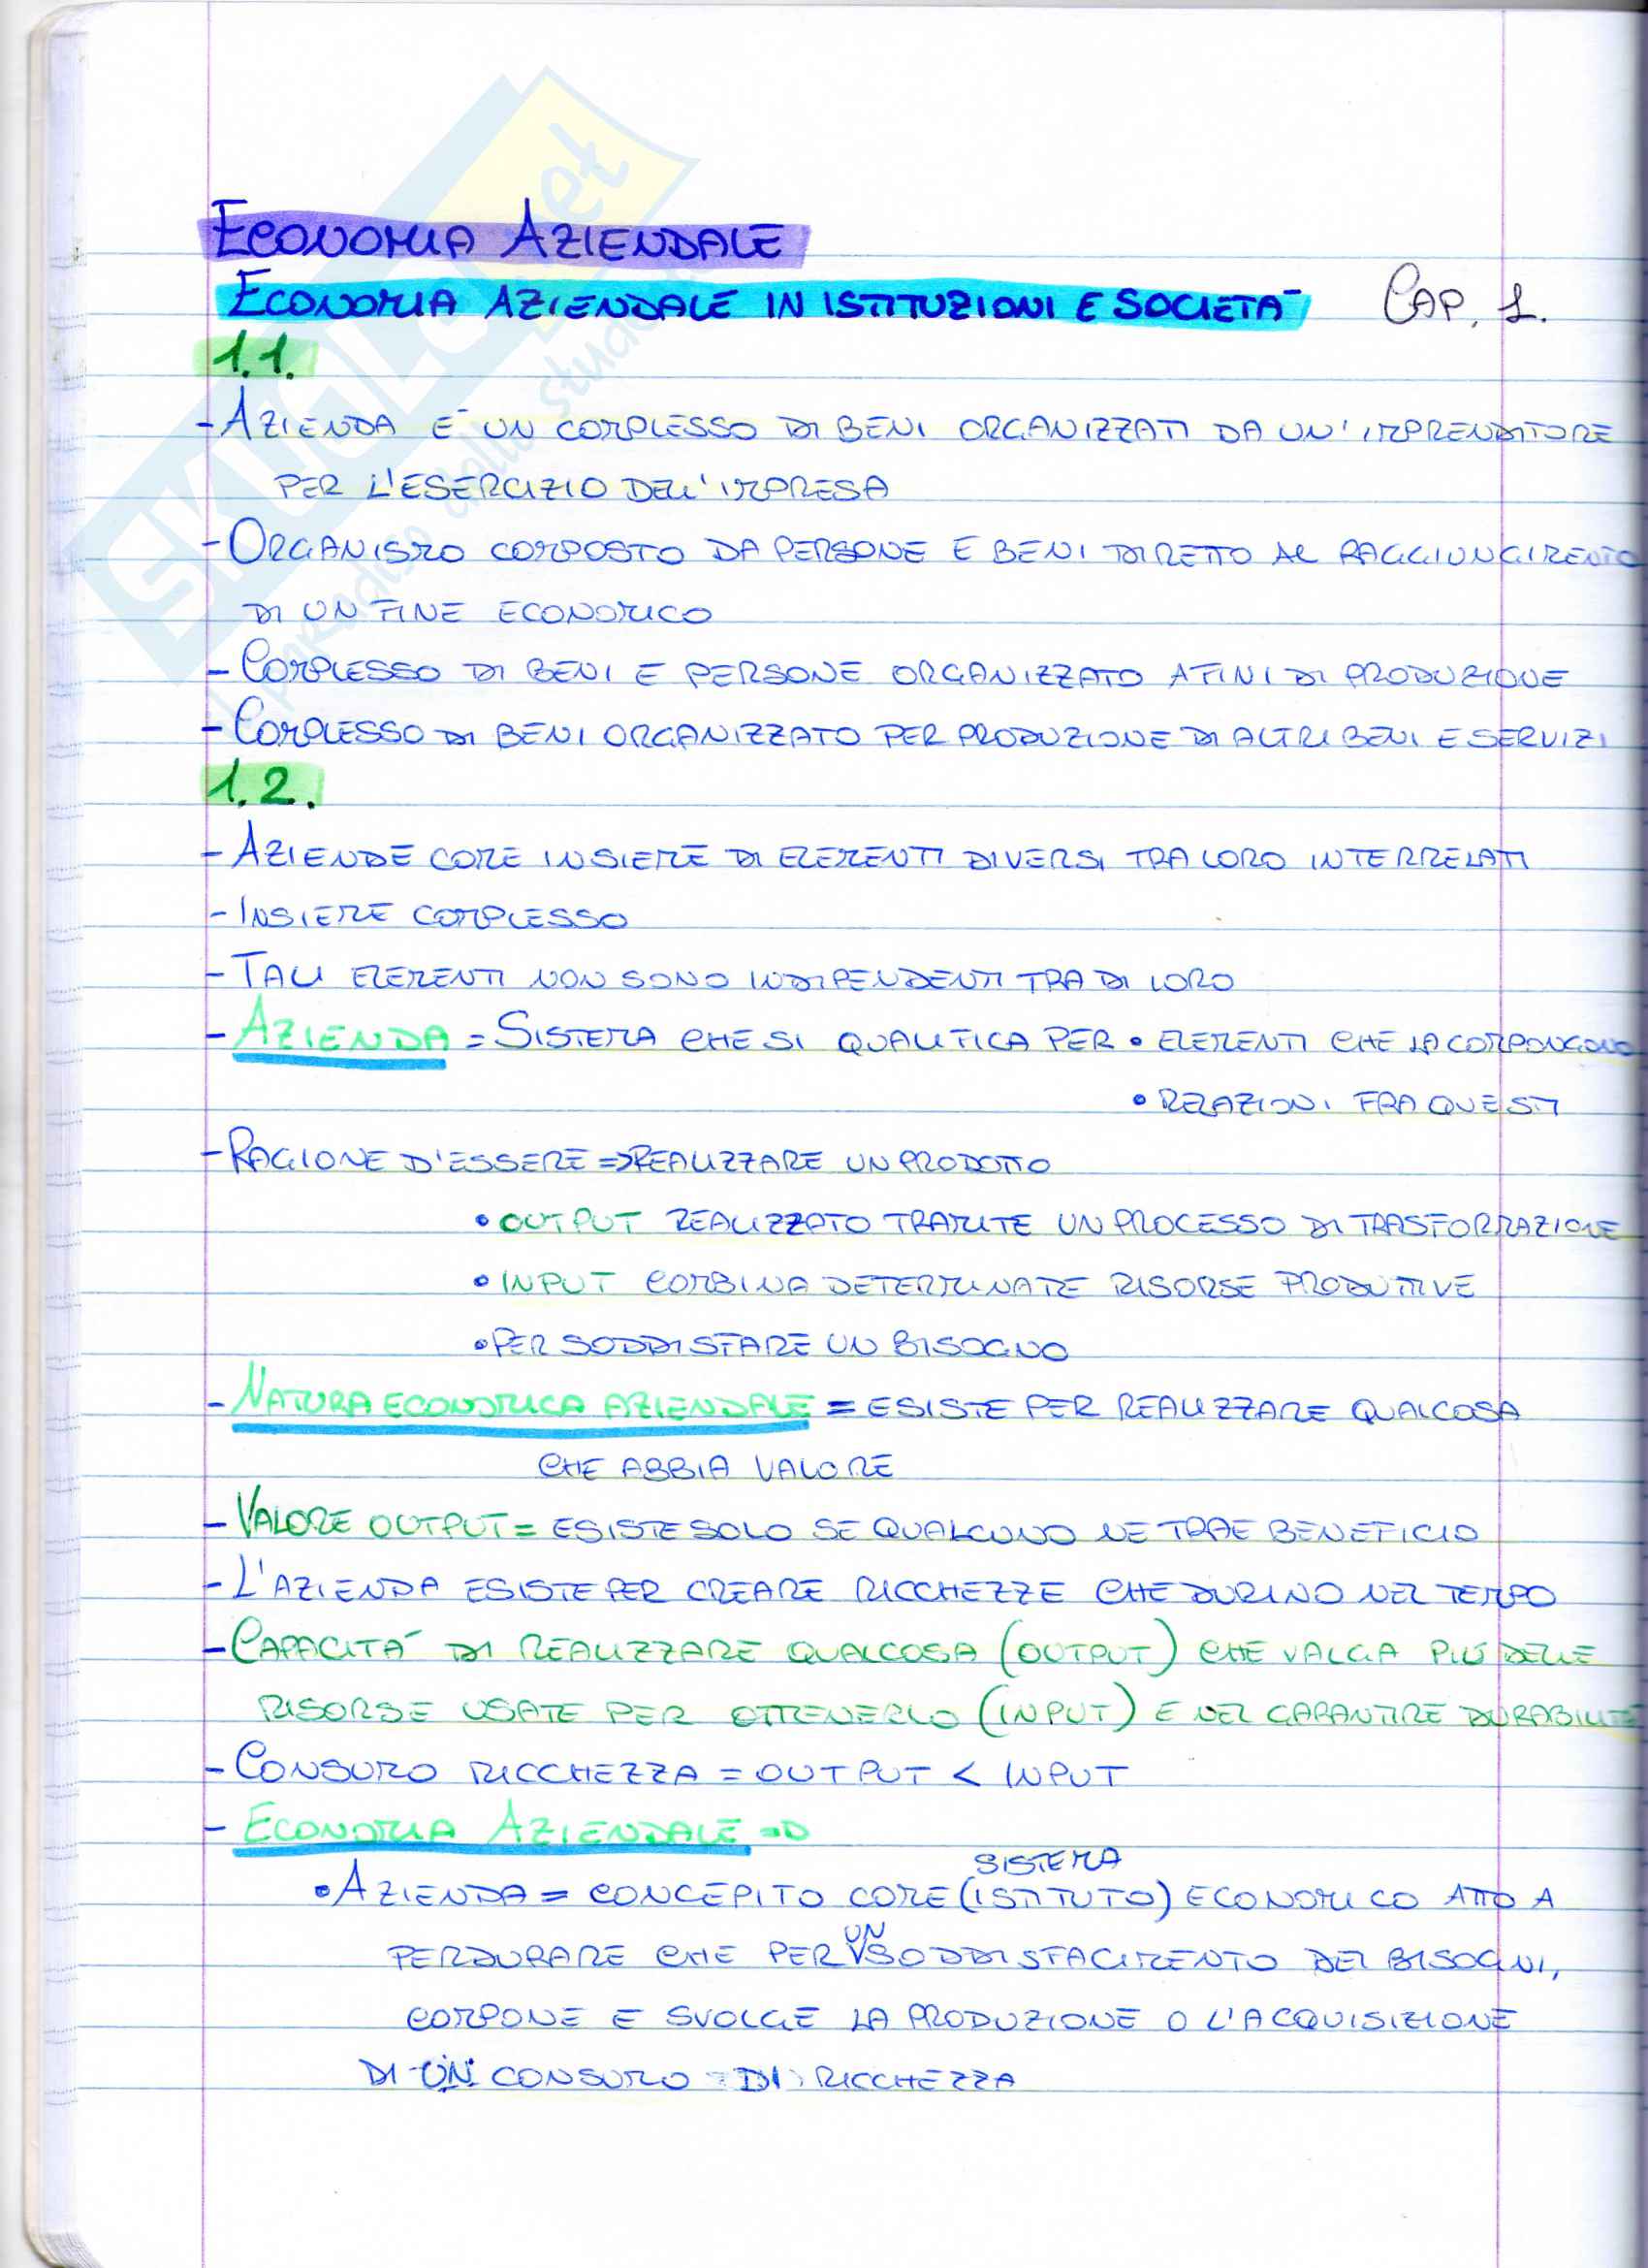 ECONOMIA AZIENDALE
ECONOMIA AZIENDALE IN ISTITUZIONI E SOCIETÀ CAP. 1.
1.1.
- AZIENDA È UN COMPLESSO DI BENI ORGANIZZATI DA UN'IMPRENDITORE
PER L'ESERCIZIO DELL'IMPRESA
- ORGANISMO COMPOSTO DA PERSONE E BENI DIRETTO AL RAGGIUNGIMENTO
DI UN FINE ECONOMICO
- COMPLESSO DI BENI E PERSONE ORGANIZZATO A FINI DI PRODUZIONE
- COMPLESSO DI BENI ORGANIZZATO PER PRODUZIONE DI ALTRI BENI E SERVIZI
1.2.
- AZIENDE COME INSIEME DI ELEMENTI DIVERSI TRA LORO INTERRELATI
- INSIEME COMPLESSO
- TALI ELEMENTI NON SONO INDIPENDENTI TRA DI LORO
- AZIENDA = SISTEMA CHE SI QUALIFICA PER • ELEMENTI CHE LA COMPONGONO
• RELAZIONI FRA QUESTI
- RAGIONE D'ESSERE => REALIZZARE UN PRODOTTO
• OUTPUT REALIZZATO TRAMITE UN PROCESSO DI TRASFORMAZIONE
• INPUT COMBINA DETERMINATE RISORSE PRODUTTIVE
• PER SODDISFARE UN BISOGNO
- NATURA ECONOMICA AZIENDALE = ESISTE PER REALIZZARE QUALCOSA
CHE ABBIA VALORE
- VALORE OUTPUT = ESISTE SOLO SE QUALCUNO NE TRAE BENEFICIO
- L'AZIENDA ESISTE PER CREARE RICCHEZZE CHE DURINO NEL TEMPO
- CAPACITÀ DI REALIZZARE QUALCOSA (OUTPUT) CHE VALGA PIÙ DELLE
RISORSE USATE PER OTTENERLO (INPUT) E NEL GARANTIRE DURABILITÀ
- CONSUMO RICCHEZZA = OUTPUT < INPUT
- ECONOMIA AZIENDALE =>
SISTEMA
• AZIENDA = CONCEPITO COME (ISTITUTO) ECONOMICO ATTO A
UN
PERDURARE CHE PER SODDISFACIMENTO DEI BISOGNI,
COMPONE E SVOLGE LA PRODUZIONE O L'ACQUISIZIONE
DI UN CONSUMO DI RICCHEZZA
SKUOLA.net
il paradiso dello studente